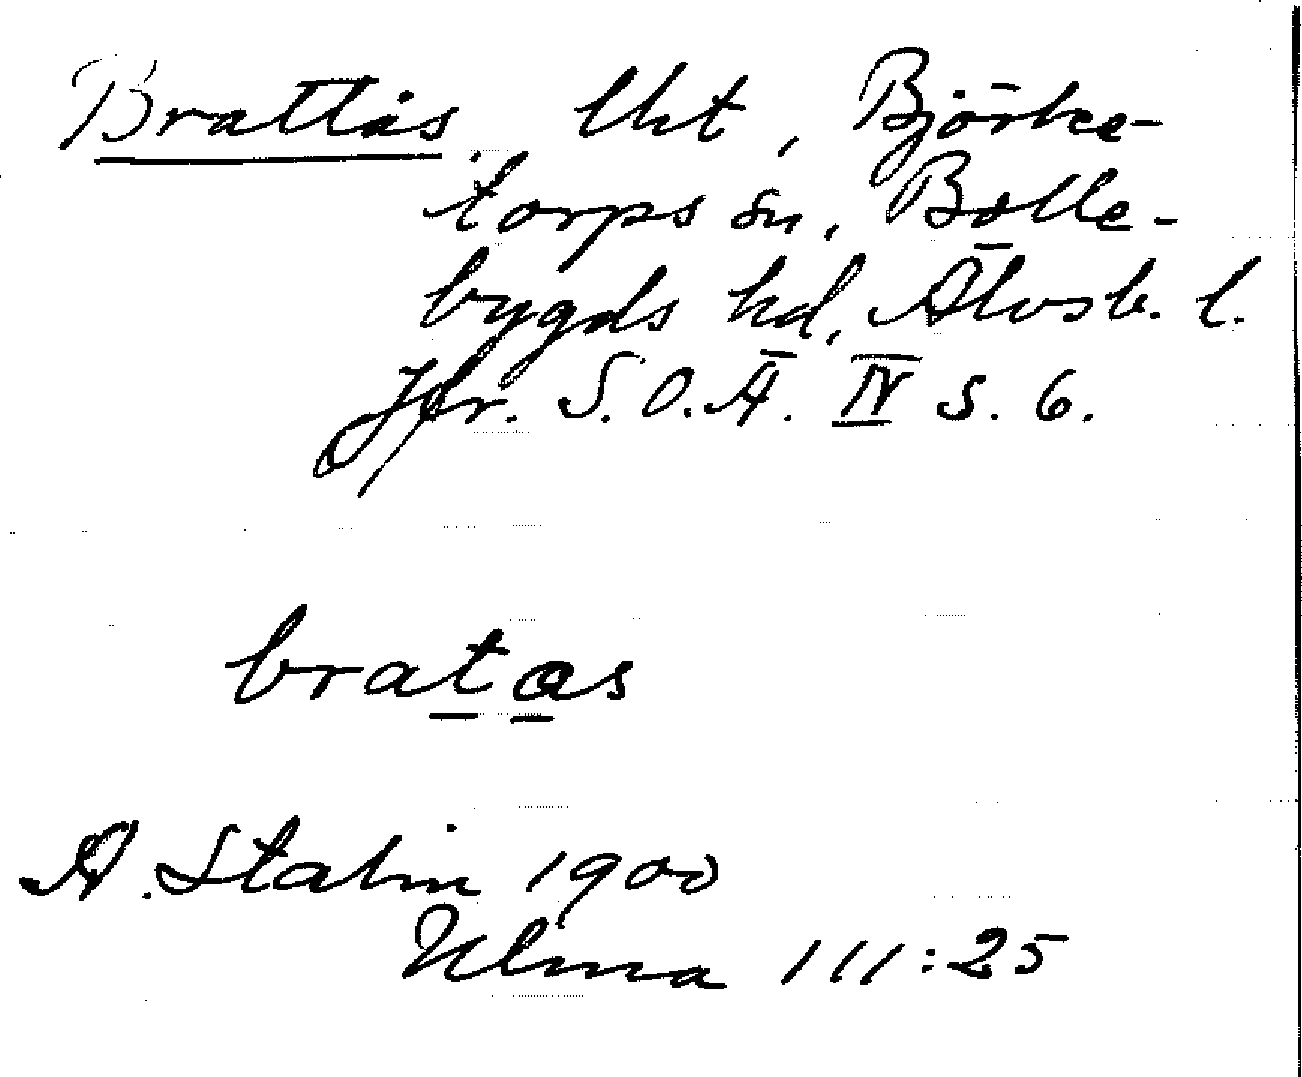 Brattås, lht, Björke-
torps sn, Bolle-
bygds hd, Älvsb. l.
Jfr. S.O.Ä. IV s. 6.
bratas
A. Stalin 1900
Ulma 111:25